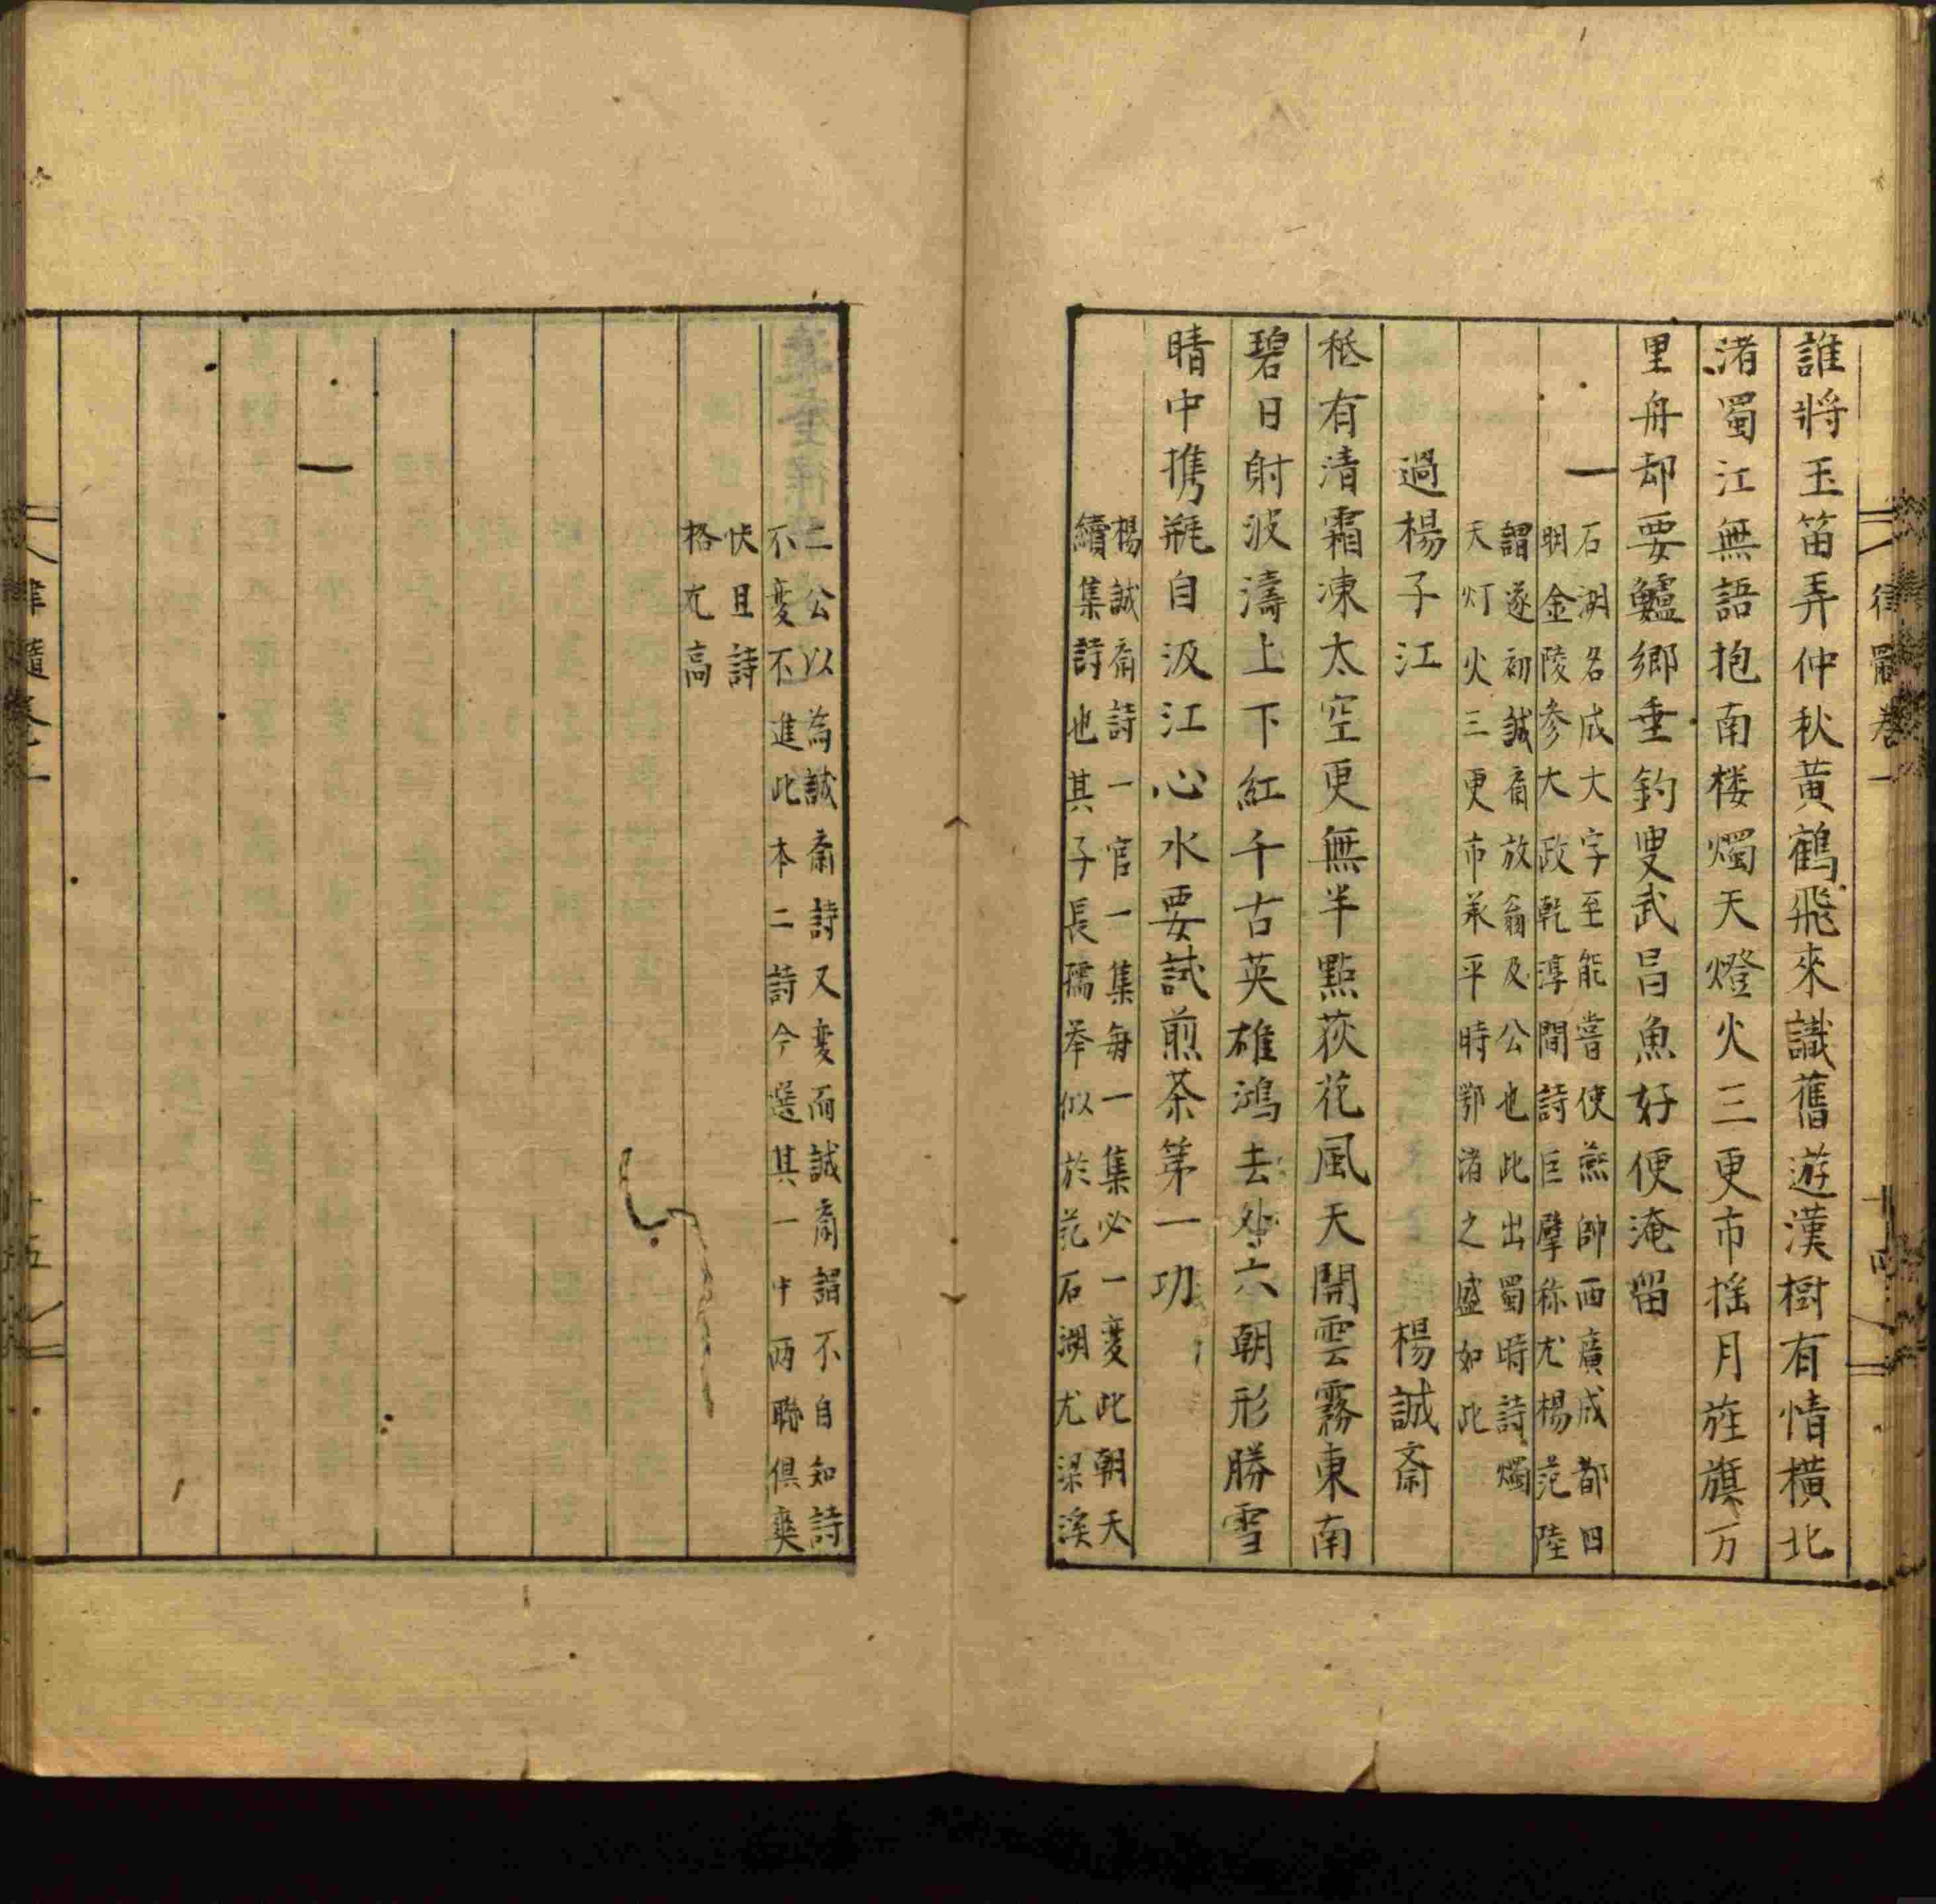 律髓卷一
十四
誰將玉笛弄仲秋黃鶴飛來識舊遊漢樹有情橫北
渚蜀江無語抱南楼燭天燈火三更市揺月旌旗万
里舟却要鱸郷垂釣叟武昌魚好便淹留
石湖名成大字至能嘗使燕帥西廣成都四
明金陵参大政乾淳間詩巨擘称尤楊范陸
謂遂初誠斎放翁及公也此出蜀時詩燭
天灯火三更市承平時鄂渚之盛如此
過楊子江
楊誠斎
秪有清霜凍太空更無半點荻花風天開雲霧東南
碧日射波濤上下紅千古英雄鴻去外六朝形勝雪
晴中携瓶自汲江心水要試煎茶第一功
楊誠斎詩一官一集毎一集必一変此朝天
續集詩也其子長孺举似於范石湖尤梁溪
二公以為誠斎詩又変而誠斎謂不自知詩
不変不進此本二詩今選其一中两聯俱爽
快且詩
格尤高
律髓卷一
十五